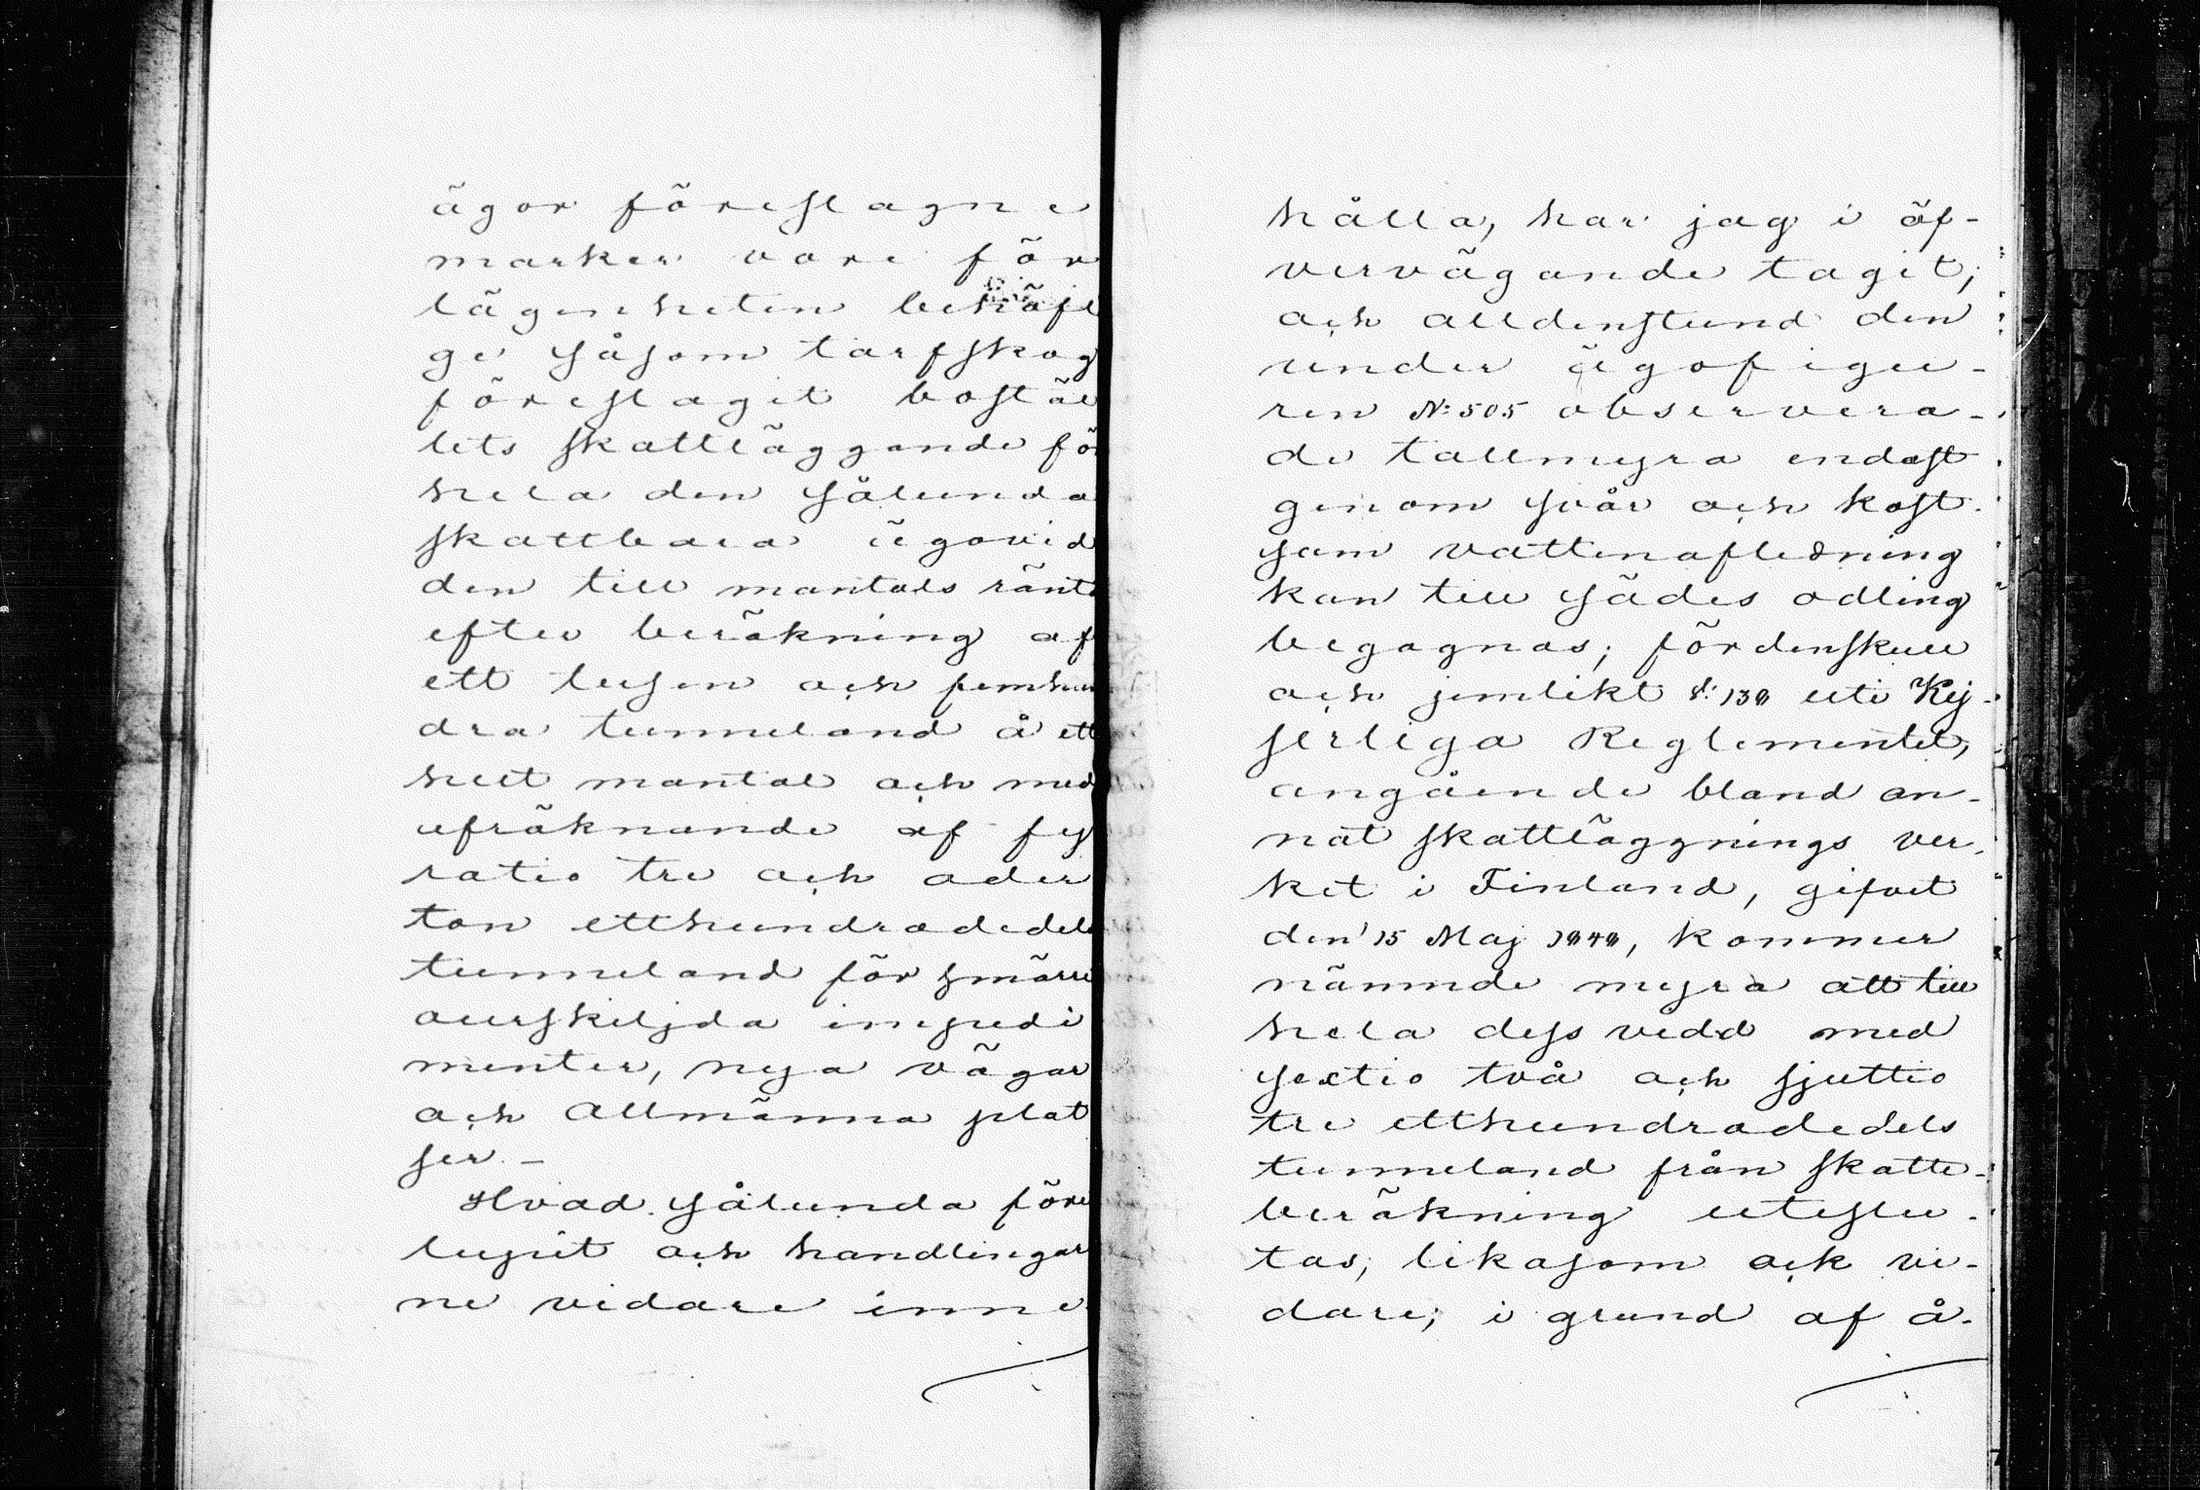 ägor föreslagne
marker vore för
lägenheten behöfl
ge såsom tarfskog
föreslagit bostäl
lets skattläggande för
hela den sålunda
skattbara ägovid
den till mantals ränta
efter beräkning af
ett tusen och femhun
dra tunneland å ett
helt mantal och med
afräknande af fyr
ratio tre och ader
ton etthundradedels
tunneland för smärre
aurskiljda impedi
menter, nya vägar
och allmänna plat
ser. –
Hvad sålunda före
lupit och handlingar
ne vidare inne
hålla, har jag i öf-
vervägande tagit;
och alldenstund den
under ägofigu-
ren N:505 observera-
de tallmyra endast
genom svår och kost-
sam vattenafledning
kan till sädes odling
begagnas; fördenskull
och jemlikt §: 138 uti Kej-
serliga Reglementet,
angående bland an-
nat skattläggnings ver-
ket i Finland, gifvet
den 15 Maj 1848, kommer
nämnde myra att till
hela dess vidd med
sextio två och sjuttio
tre etthundradedels
tunneland från skatte-
beräkning uteslu-
tas, likasom ock vi-
dare, i grund af å-